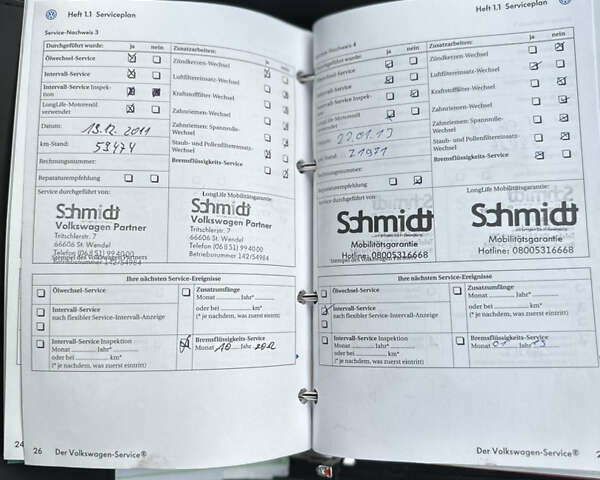 Heft 1.1 Serviceplan
Service-Nachweis 3
Durchgeführt wurde: ja nein
Ölwechsel-Service
Intervall-Service
Intervall-Service Inspek-
tion
LongLife-Motorenöl
verwendet
Datum: 13.12.2011
km-Stand: 59474
Rechnungsnummer:
Reparaturempfehlung
Zusatzarbeiten: ja nein
Zündkerzen-Wechsel
Luftfiltereinsatz-Wechsel
Kraftstofffilter-Wechsel
Zahnriemen-Wechsel
Zahnriemen: Spannrolle-
Wechsel
Staub- und Pollenfiltereinsatz-
Wechsel
Bremsflüssigkeits-Service
Service durchgeführt von:
Schmidt
Volkswagen Partner
Tritschlerstr. 7
66606 St. Wendel
Telefon (0 68 51) 99 40-00
Betriebsnummer 142/54984
Stempel des Volkswagen Partners
LongLife Mobilitätsgarantie:
Schmidt
Volkswagen Partner
Tritschlerstr. 7
66606 St. Wendel
Telefon (0 68 51) 99 40 00
Betriebsnummer 142/54984
Ihre nächsten Service-Ereignisse
Ölwechsel-Service
Intervall-Service
nach flexibler Service-Intervall-Anzeige
Intervall-Service Inspektion
Monat Jahr*
oder bei km*
(* je nachdem, was zuerst eintritt)
Zusatzumfänge
Monat Jahr*
oder bei km*
(* je nachdem, was zuerst eintritt)
Bremsflüssigkeits-Service
Monat 10 Jahr 2012
24
26 Der Volkswagen-Service®
Heft 1.1 Serviceplan
Service-Nachweis 4
ja nein
Intervall-Service
Intervall-Service Inspek-
LongLife-Motorenöl
verwendet
Reparaturempfehlung
Zusatzarbeiten: ja nein
Zündkerzen-Wechsel
Luftfiltereinsatz-Wechsel
Kraftstofffilter-Wechsel
Zahnriemen-Wechsel
Zahnriemen: Spannrolle-
Wechsel
Staub- und Pollenfiltereinsatz-
Wechsel
Bremsflüssigkeits-Service
Service durchgeführt von:
Schmidt
Mobilitätsgarantie
Hotline: 08005316668
LongLife Mobilitätsgarantie:
Schmidt
Mobilitätsgarantie
Hotline: 08005316668
Ihre nächsten Service-Ereignisse
Ölwechsel-Service
Intervall-Service
nach flexibler Service-Intervall-Anzeige
Intervall-Service Inspektion
Monat Jahr*
oder bei km*
(* je nachdem, was zuerst eintritt)
Zusatzumfänge
Monat Jahr*
oder bei km*
(* je nachdem, was zuerst eintritt)
Bremsflüssigkeits-Service
Monat 01 Jahr 15
Der Volkswagen-Service®